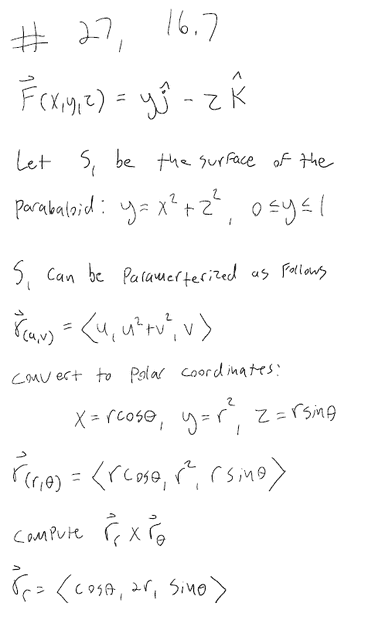 # 27, 16.7
F⃗(x,y,z) = yĵ - z k̂
Let S₁ be the surface of the
parabaloid: y = x² + z², 0 ≤ y ≤ 1
S₁ can be Paramerterized as follows
r⃗(u,v) = ⟨u, u²+v², v⟩
convert to Polar coordinates:
x = rcosθ, y = r², z = rsinθ
r⃗(r,θ) = ⟨rcosθ, r², rsinθ⟩
compute r⃗ᵣ × r⃗_θ
r⃗ᵣ = ⟨cosθ, 2r, sinθ⟩